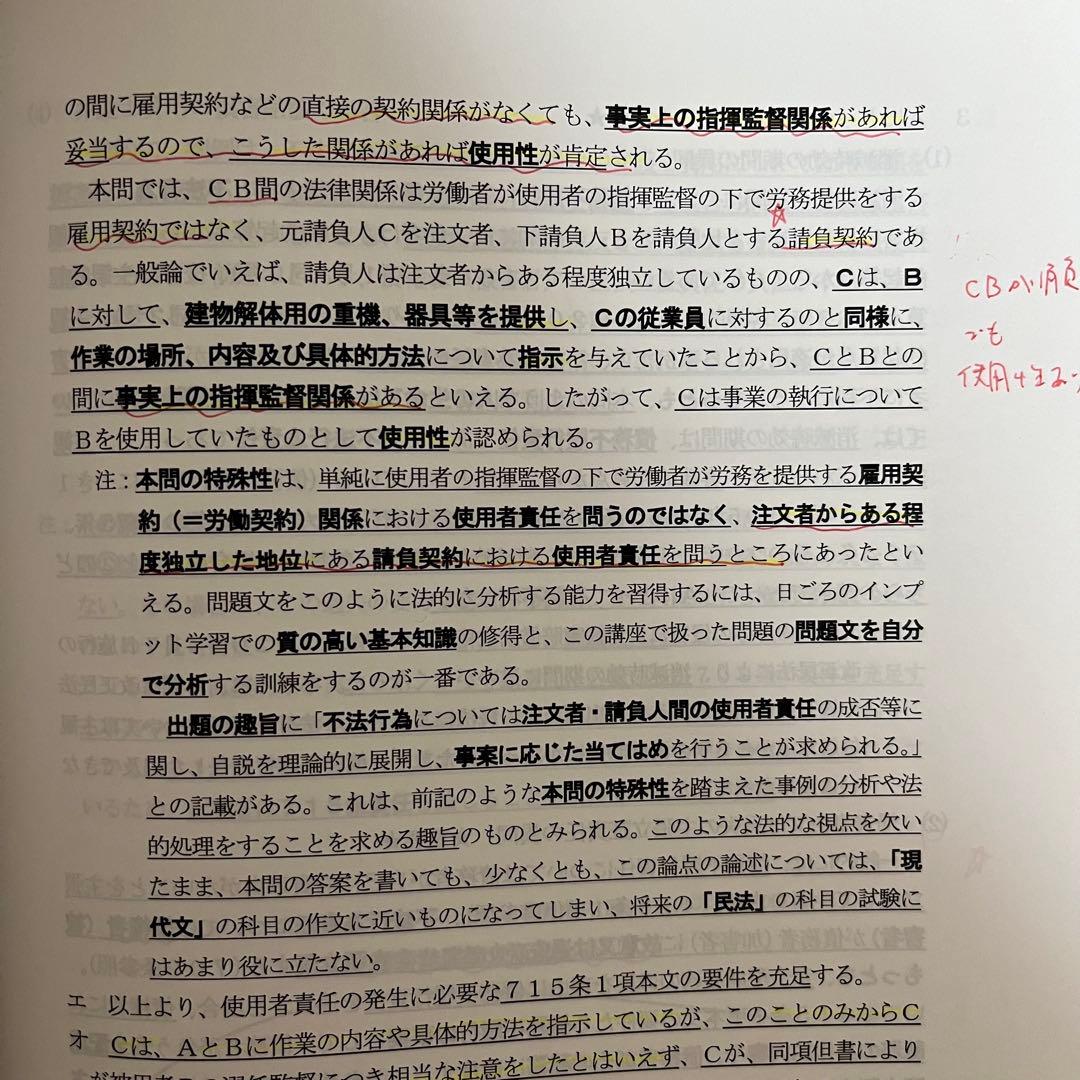 の間に雇用契約などの直接の契約関係がなくても、事実上の指揮監督関係があれば
妥当するので、こうした関係があれば使用性が肯定される。
本問では、ＣＢ間の法律関係は労働者が使用者の指揮監督の下で労務提供をする
雇用契約ではなく、元請負人Ｃを注文者、下請負人Ｂを請負人とする請負契約であ
る。一般論でいえば、請負人は注文者からある程度独立しているものの、Ｃは、Ｂ
に対して、建物解体用の重機、器具等を提供し、Ｃの従業員に対するのと同様に、
作業の場所、内容及び具体的方法について指示を与えていたことから、ＣとＢとの
間に事実上の指揮監督関係があるといえる。したがって、Ｃは事業の執行について
Ｂを使用していたものとして使用性が認められる。
注：本問の特殊性は、単純に使用者の指揮監督の下で労働者が労務を提供する雇用契
約（＝労働契約）関係における使用者責任を問うのではなく、注文者からある程
度独立した地位にある請負契約における使用者責任を問うところにあったとい
える。問題文をこのように法的に分析する能力を習得するには、日ごろのインプ
ット学習での質の高い基本知識の修得と、この講座で扱った問題の問題文を自分
で分析する訓練をするのが一番である。
出題の趣旨に「不法行為については注文者・請負人間の使用者責任の成否等に
関し、自説を理論的に展開し、事案に応じた当てはめを行うことが求められる。」
との記載がある。これは、前記のような本問の特殊性を踏まえた事例の分析や法
的処理をすることを求める趣旨のものとみられる。このような法的な視点を欠い
たまま、本問の答案を書いても、少なくとも、この論点の論述については、「現
代文」の科目の作文に近いものになってしまい、将来の「民法」の科目の試験に
はあまり役に立たない。
エ 以上より、使用者責任の発生に必要な７１５条１項本文の要件を充足する。
オ Ｃは、ＡとＢに作業の内容や具体的方法を指示しているが、このことのみからＣ
が被用者Ｂの選任監督につき相当な注意をしたとはいえず、Ｃが、同項但書により
ＣＢが請負
でも
使用性あ